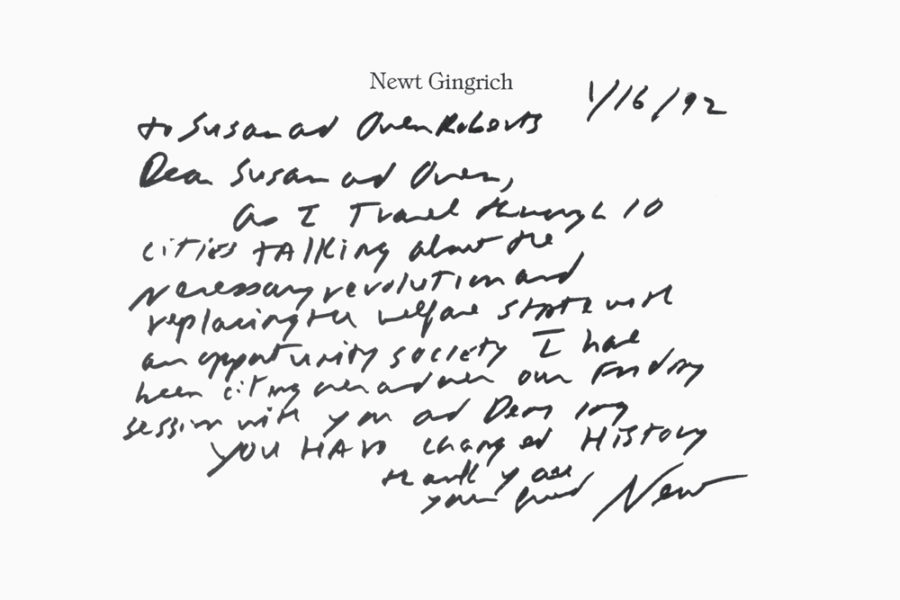 Newt Gingrich
1/16/92
to Susan ad Owen Roberts
Dear Susan ad Owen,
As I Travel through 10
cities talking about the
Necessary revolution and
replacing the welfare state with
an opportunity society I have
been citing over and over our Friday
session with you ad Deming
YOU HAVE changed History
thank you
your friend Newt